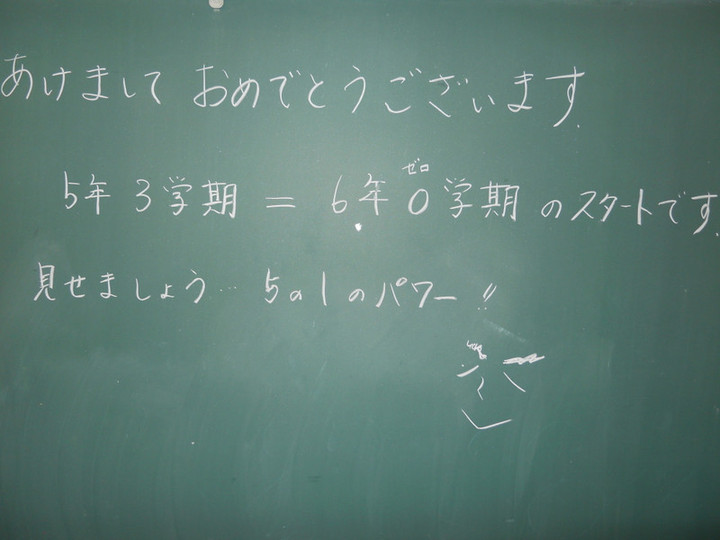 あけまして おめでとうございます.
5年 3学期 = 6年 0学期 のスタートです.
ゼロ
見せましょう… 5の1のパワー!!